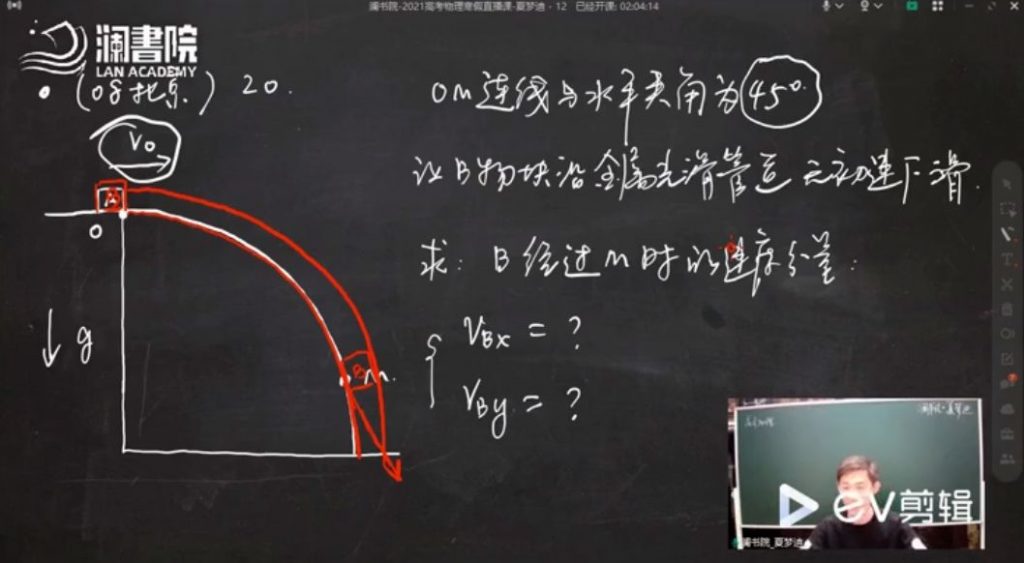 澜书院-2021高考物理寒假直播课-夏梦迪 - 12 已经开课: 02:04:14
澜書院
LAN ACADEMY
(08北京) 20.
OM连线与水平夹角为45°.
V₀
让B物块沿金属光滑管道无初速下滑.
A
O
求: B经过M时的速度分量:
g
V_Bx = ?
B M.
V_By = ?
澜书院·夏梦迪
EV剪辑
澜书院_夏梦迪